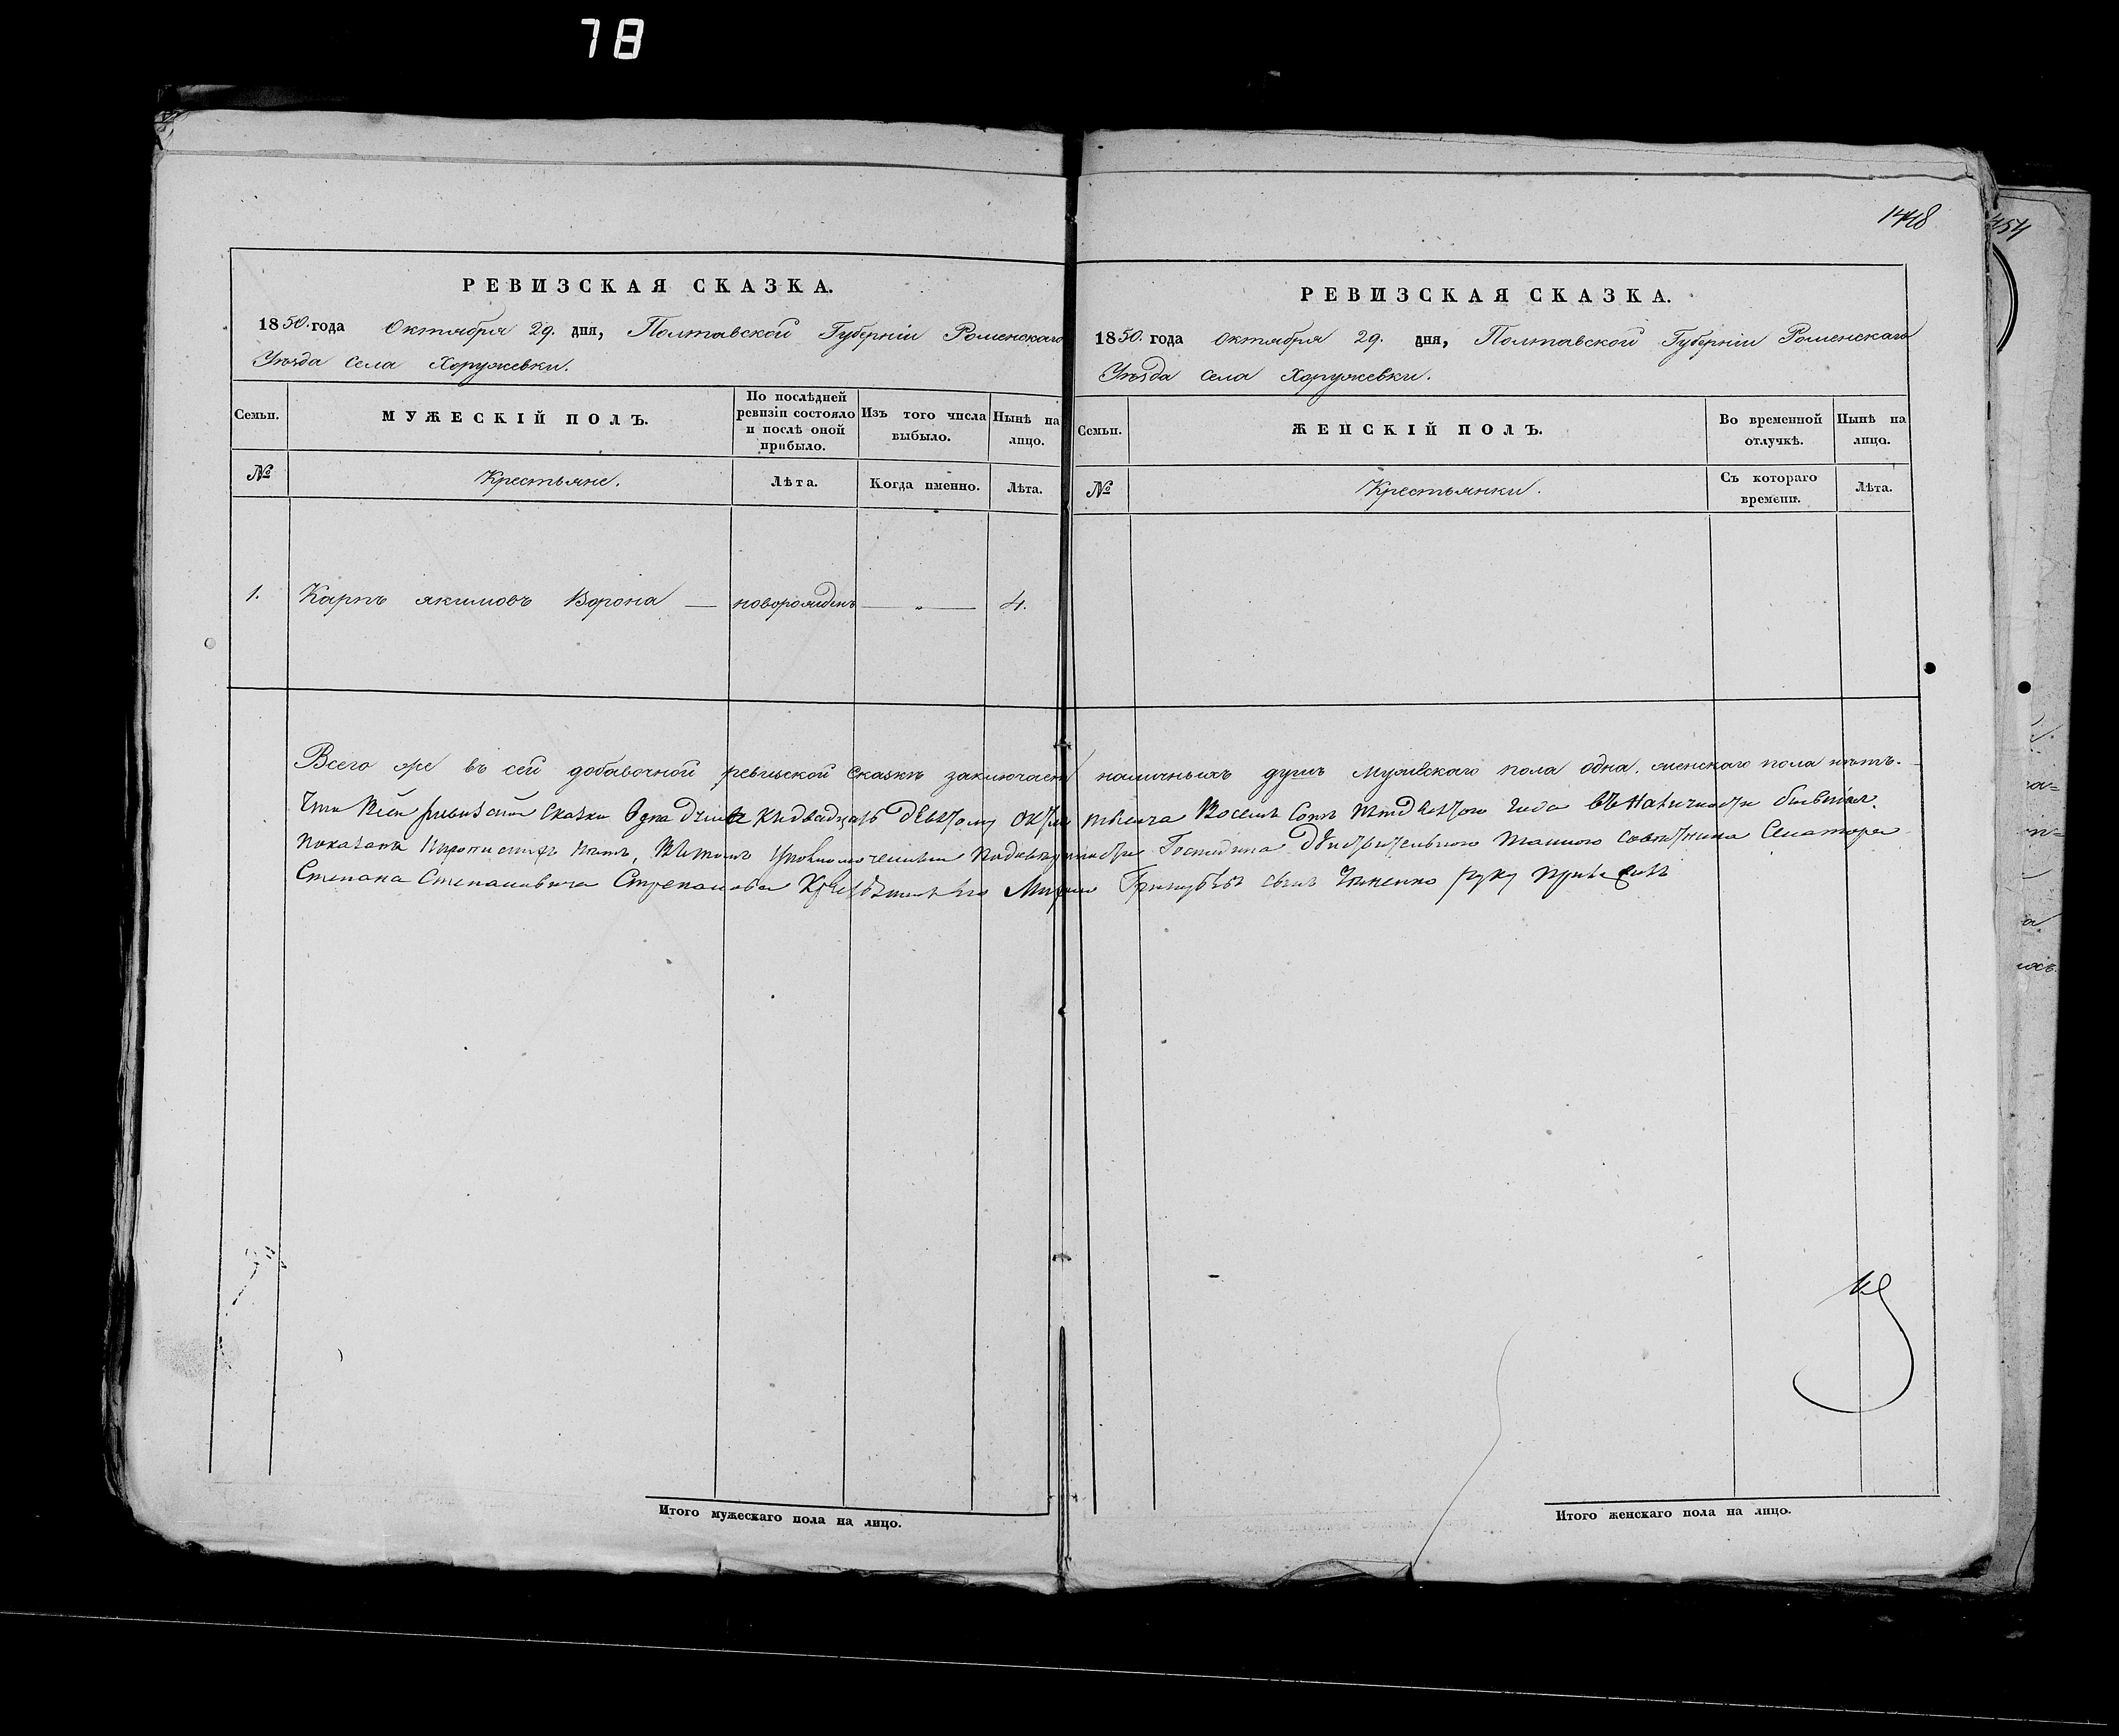 78
1448
454
РЕВИЗСКАЯ СКАЗКА.
1850. года Октября 29. дня, Полтавской Губерніи Роменскаго
Уѣзда села Хоружевки.
Семьи.
МУЖЕСКІЙ ПОЛЪ.
По послѣдней ревизіи состояло и послѣ оной прибыло.
Изъ того числа выбыло.
Нынѣ на лицо.
№
Крестьяне.
Лѣта.
Когда именно.
Лѣта.
1. Карпъ якимовъ Ворона — новорожденъ — „ — 4.
РЕВИЗСКАЯ СКАЗКА.
1850. года Октября 29. дня, Полтавской Губерніи Роменскаго
Уѣзда села Хоружевки.
Семьи.
ЖЕНСКІЙ ПОЛЪ.
Во временной отлучкѣ.
Нынѣ на лицо.
№
Крестьянки.
Съ котораго времени.
Лѣта.
Всего же въ сей добавочной ревизской сказкѣ заключает наличныхъ душъ Мужескаго пола одна. женскаго пола нѣтъ.
Что сказки Одна душа двадцать девятому Восемь Сотъ года
показана нѣтъ, Господина Дѣйствительного Тайного совѣтника Сенатора
Степана Степановича Стрекалова его сынъ руку
Итого мужескаго пола на лицо.
Итого женскаго пола на лицо.